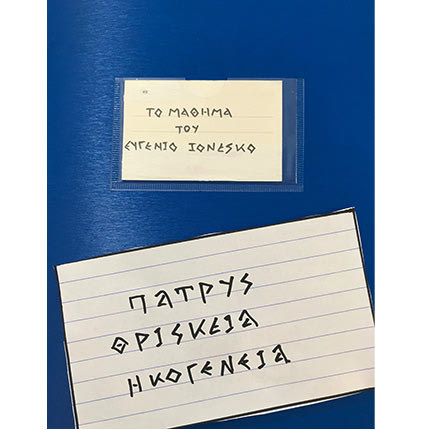 ΤΟ ΜΑΘΗΜΑ
ΤΟΥ
ΕΥΓΕΝΙΟ ΙΟΝΕSΚΟ
ΠΑΤΡΥS
ΘΡΙSΚΕΙΑ
ΗΚΟΓΕΝΕΙΑ